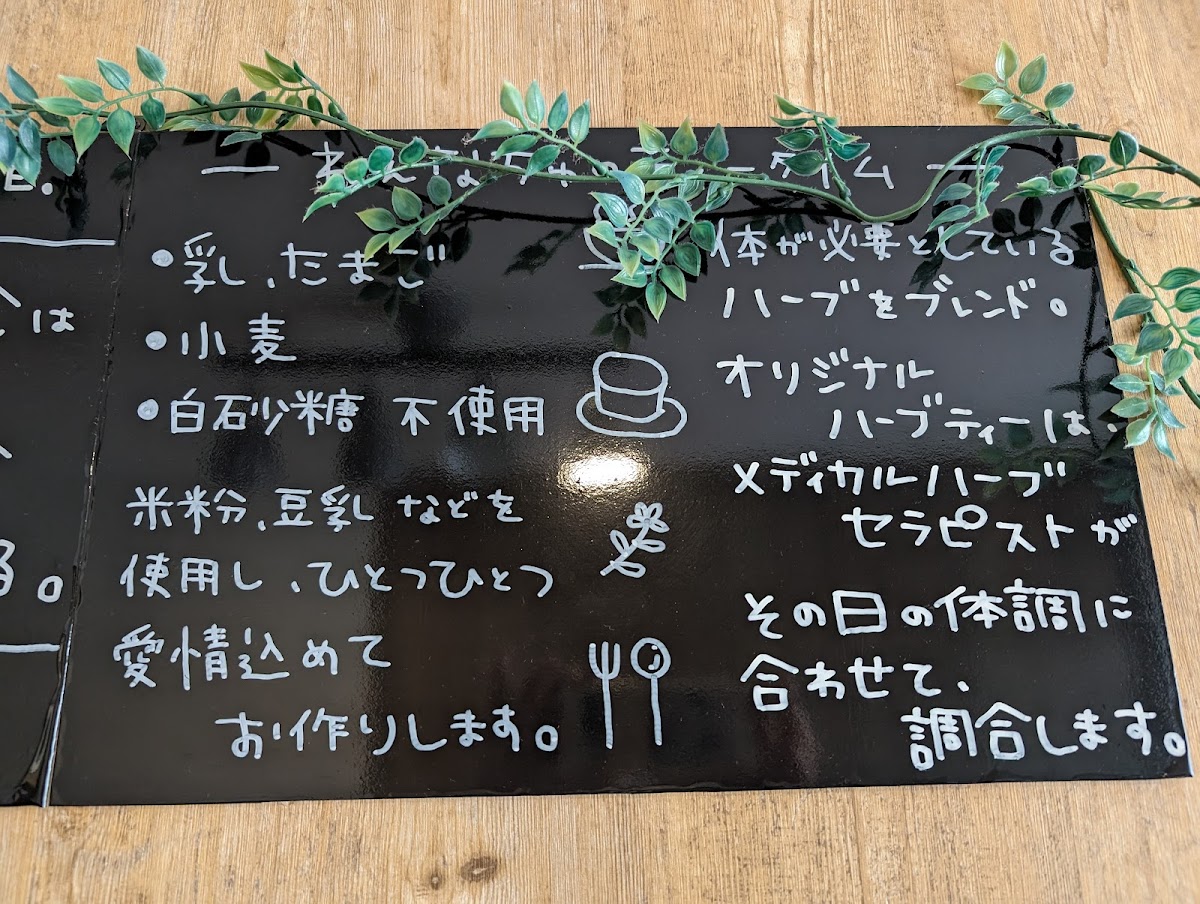 は
。
タイム
•乳、たまご
•小麦
•白石砂糖 不使用
米粉、豆乳 などを
使用し、ひとつひとつ
愛情込めて
お作りします。
体が必要としている
ハーブをブレンド。
オリジナル
ハーブティーは、
メディカルハーブ
セラピストが
その日の体調に
合わせて、
調合します。